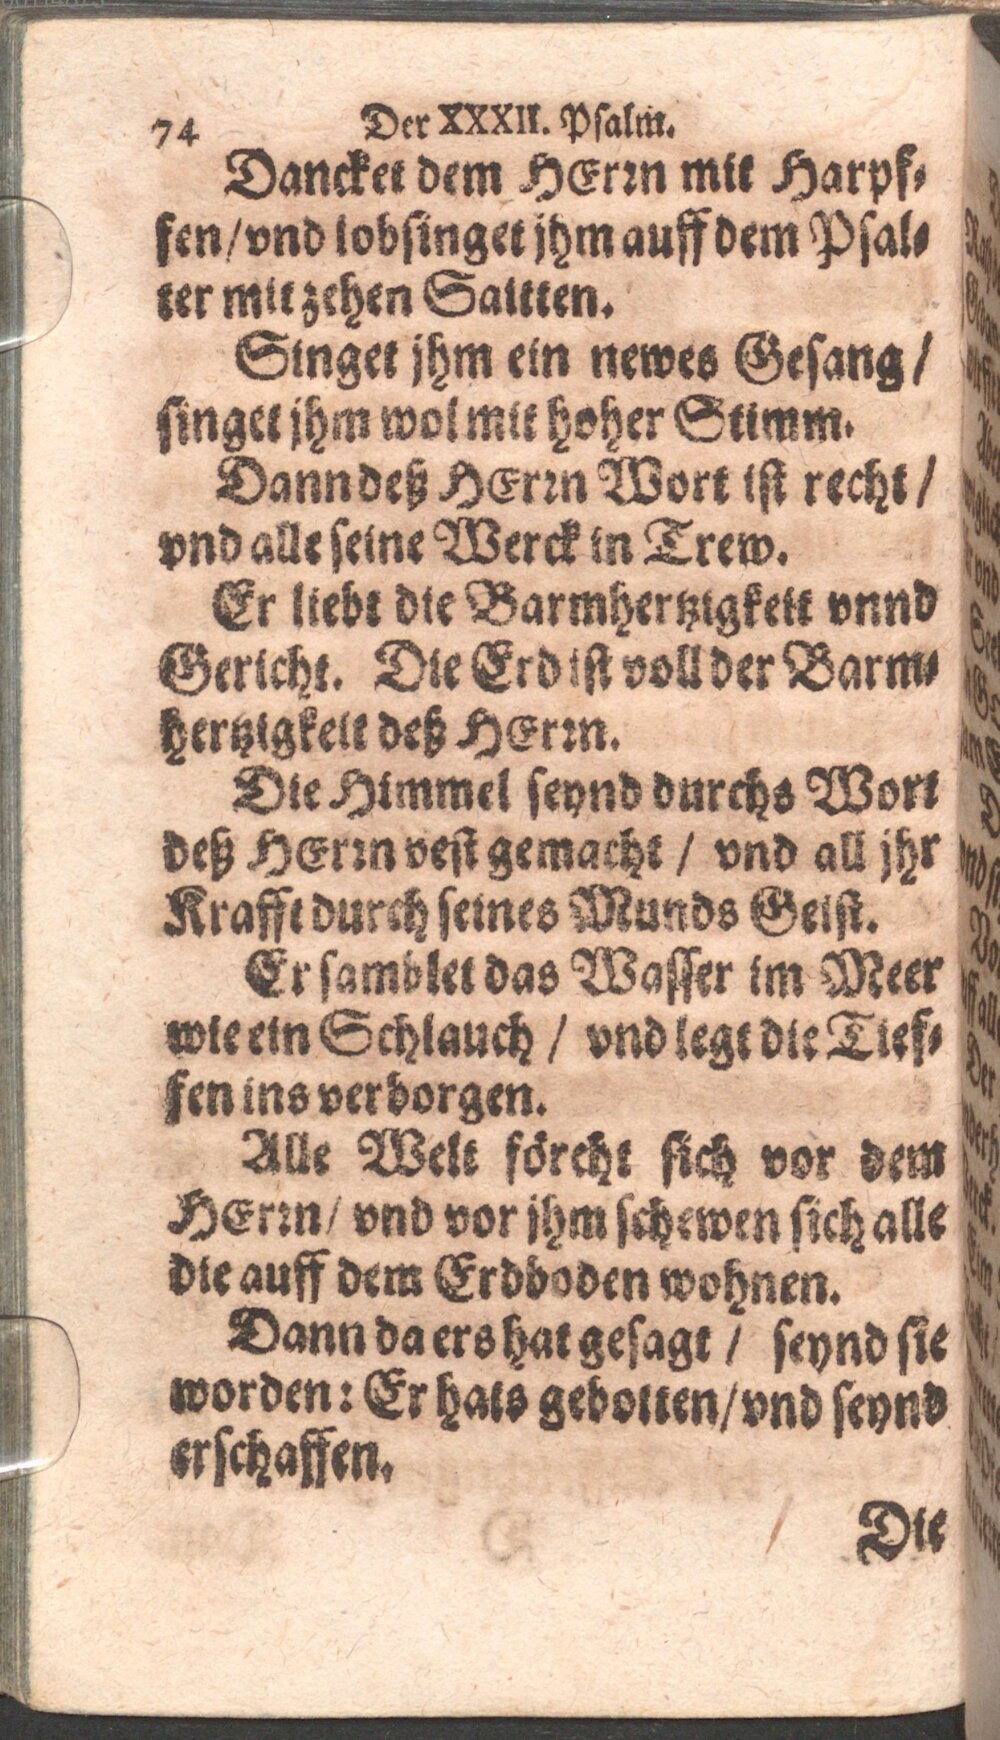 74 Der XXXII. Psalm.
Dancket dem HErrn mit Harpf-
fen/vnd lobsinget jhm auff dem Psal-
ter mit zehen Saitten.
Singet jhm ein newes Gesang/
singet jhm wol mit hoher Stimm.
Dann deß HErrn Wort ist recht/
vnd alle seine Werck in Trew.
Er liebt die Barmhertzigkeit vnnd
Gericht. Die Erd ist voll der Barm-
hertzigkeit deß HErrn.
Die Himmel seynd durchs Wort
deß HErrn vest gemacht / vnd all jhr
Krafft durch seines Munds Geist.
Er samblet das Wasser im Meer
wie ein Schlauch / vnd legt die Tief-
fen ins verborgen.
Alle Welt förcht sich vor dem
HErrn/ vnd vor jhm schewen sich alle
die auff dem Erdboden wohnen.
Dann da ers hat gesagt / seynd sie
worden: Er hats gebotten/vnd seynd
erschaffen.
Die